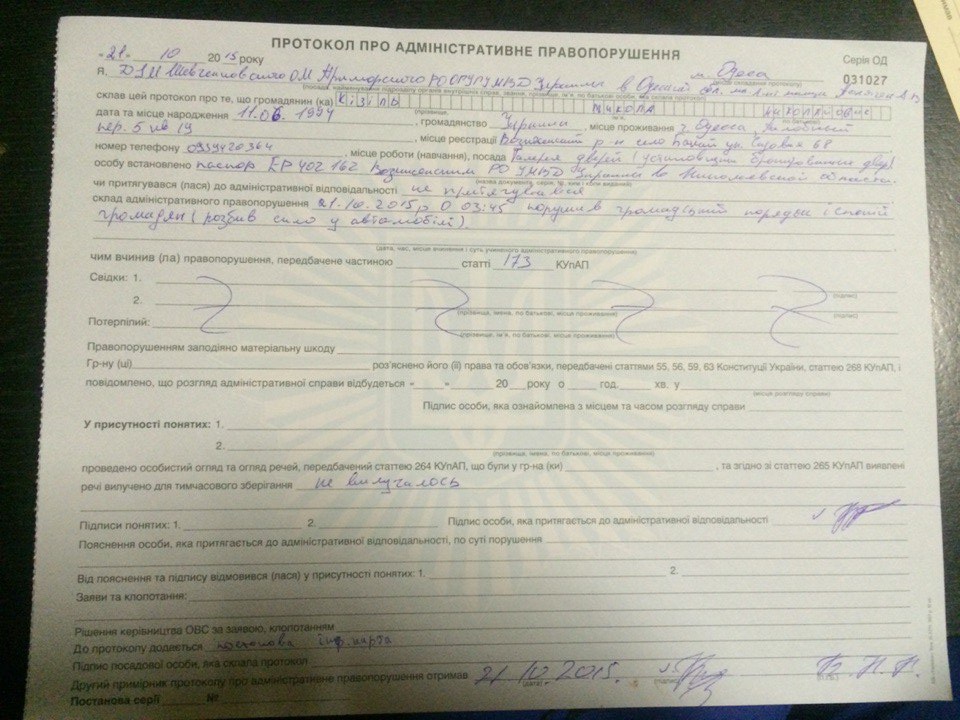 ПРОТОКОЛ ПРО АДМІНІСТРАТИВНЕ ПРАВОПОРУШЕННЯ
«21» 10 2015 року м. Одеса Серія ОД
(місце складання протоколу)
031027
Я, ДІМ Шевченковского ОМ Приморского РО ОГУГУМВД Украины в Одеской обл.
склав цей протокол про те, що громадянин (ка) КІЗІЛЬ МИКОЛА МИКОЛАЙОВИЧ
(прізвище, ім'я,
дата та місце народження 11.06.1994, громадянство Украина, місце проживання г. Одесса,
пер. 5 кв 19, місце реєстрації р-н село ул. 68
номер телефону 0939420364, місце роботи (навчання), посада Галерея дверей (установщик бронированых двер)
особу встановлено паспорт ЕР 402162 Вознесенским РО УМВД Украины в Николаевской области.
(назва документа, серія, №, ким і коли виданий)
чи притягувався (лася) до адміністративної відповідальності не притягувався
склад адміністративного правопорушення 21.10.2015р. О 03:45 порушив громадський порядок і спокій
громадян (розбив скло у автомобілі).
(дата, час, місце вчинення і суть учиненого адміністративного правопорушення)
чим вчинив (ла) правопорушення, передбачене частиною статті 173 КУпАП
Свідки: 1.
(підпис)
2.
(прізвище, імена, по батькові, місце проживання) (підпис)
Потерпілий:
(прізвище, ім'я, по батькові, місце проживання)
Правопорушенням заподіяно матеріальну шкоду
Гр-ну (ці) роз'яснено його (її) права та обов'язки, передбачені статтями 55, 56, 59, 63 Конституції України, статтею 268 КУпАП, і
повідомлено, що розгляд адміністративної справи відбудеться « » 20 року о год. хв. у
(місце розгляду справи)
Підпис особи, яка ознайомлена з місцем та часом розгляду справи
У присутності понятих: 1.
2.
(прізвище, імена, по батькові, місце проживання)
проведено особистий огляд та огляд речей, передбачений статтею 264 КУпАП, що були у гр-на (ки) , та згідно зі статтею 265 КУпАП виявлені
речі вилучено для тимчасового зберігання не вилучалось
Підписи понятих: 1. 2. Підпис особи, яка притягається до адміністративної відповідальності
Пояснення особи, яка притягається до адміністративної відповідальності, по суті порушення
Від пояснення та підпису відмовився (лася) у присутності понятих: 1. 2.
Заяви та клопотання:
Рішення керівництва ОВС за заявою, клопотанням
До протоколу додається постанова інф. карта
Підпис посадової особи, яка склала протокол
Другий примірник протоколу про адміністративне правопорушення отримав 21.10.2015.
(дата) (підпис)
Постанова серії №